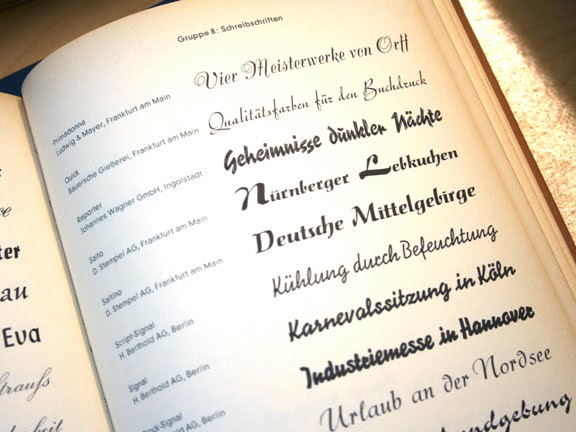 ter
au
Eva
Strauß
Gruppe 8: Schreibschriften
Primadonna
Ludwig & Mayer, Frankfurt am Main
Vier Meisterwerke von Orff
Quick
Bauersche Gießerei, Frankfurt am Main
Qualitätsfarben für den Buchdruck
Reporter
Johannes Wagner GmbH, Ingolstadt
Geheimnisse dunkler Nächte
Salto
D. Stempel AG, Frankfurt am Main
Nürnberger Lebkuchen
Saltino
D. Stempel AG, Frankfurt am Main
Deutsche Mittelgebirge
Script-Signal
H. Berthold AG, Berlin
Kühlung durch Befeuchtung
Signal
H. Berthold AG, Berlin
Karnevalssitzung in Köln
ock-Signal
H. Berthold AG, Berlin
Industriemesse in Hannover
Urlaub an der Nordsee
ndgebung